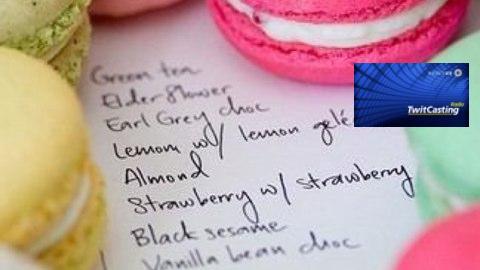 Green tea
Elderflower
Earl Grey choc
Lemon w/ lemon gelé
Almond
Strawberry w/ strawberry
Black sesame
Vanilla bean choc
Radio
TwitCasting